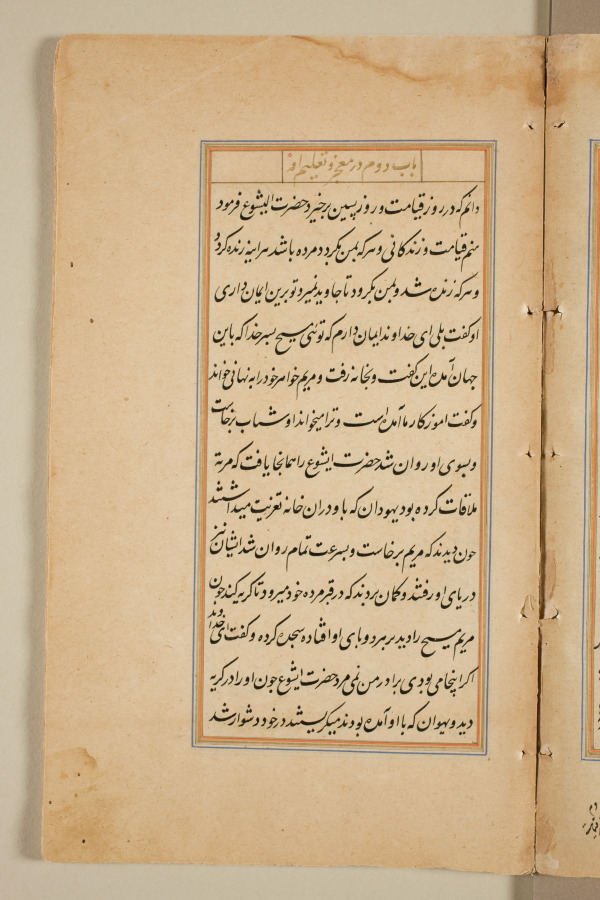 باب دوم در معجز و تعلیم او
دانم که در روز قیامت و روز پسین برخیزد حضرت الیشوع فرمود
منم قیامت و زندگانی و هر که بمن بگرود مرده باشد هراینه زنده گردد
و هر که زنده شد و بمن بگرود تا جاوید نمیرد تو برین ایمان داری
او گفت بلی ای خداوند ایمان دارم که توئی مسیح پسر خدا که باین
جهان آمده این گفت و بخانه رفت و مریم خواهر خود را به نهانی خواند
و گفت اموزکار ما آمده است و ترا میخواند او شتاب برخاست
و بسوی او روان شد حضرت ایشوع را همانجا یافت که مرته
ملاقات کرده بود یهودان که با و دران خانه تعزیت میداشتند
چون دیدند که مریم برخاست و بسرعت تمام روان شد ایشان نیز
در پای او رفتند و گمان بردند که در قبر مرده خود میرود تا گریه کند چون
مریم مسیح را دید بر سر دو پای او افتاده سجده کرده و گفت ای خداوند
اگر اینجا می بودی برادر من نمی مرد حضرت ایشوع چون او را در گریه
دید و یهودان که با او آمده بودند میگریستند در خود دشوار شد